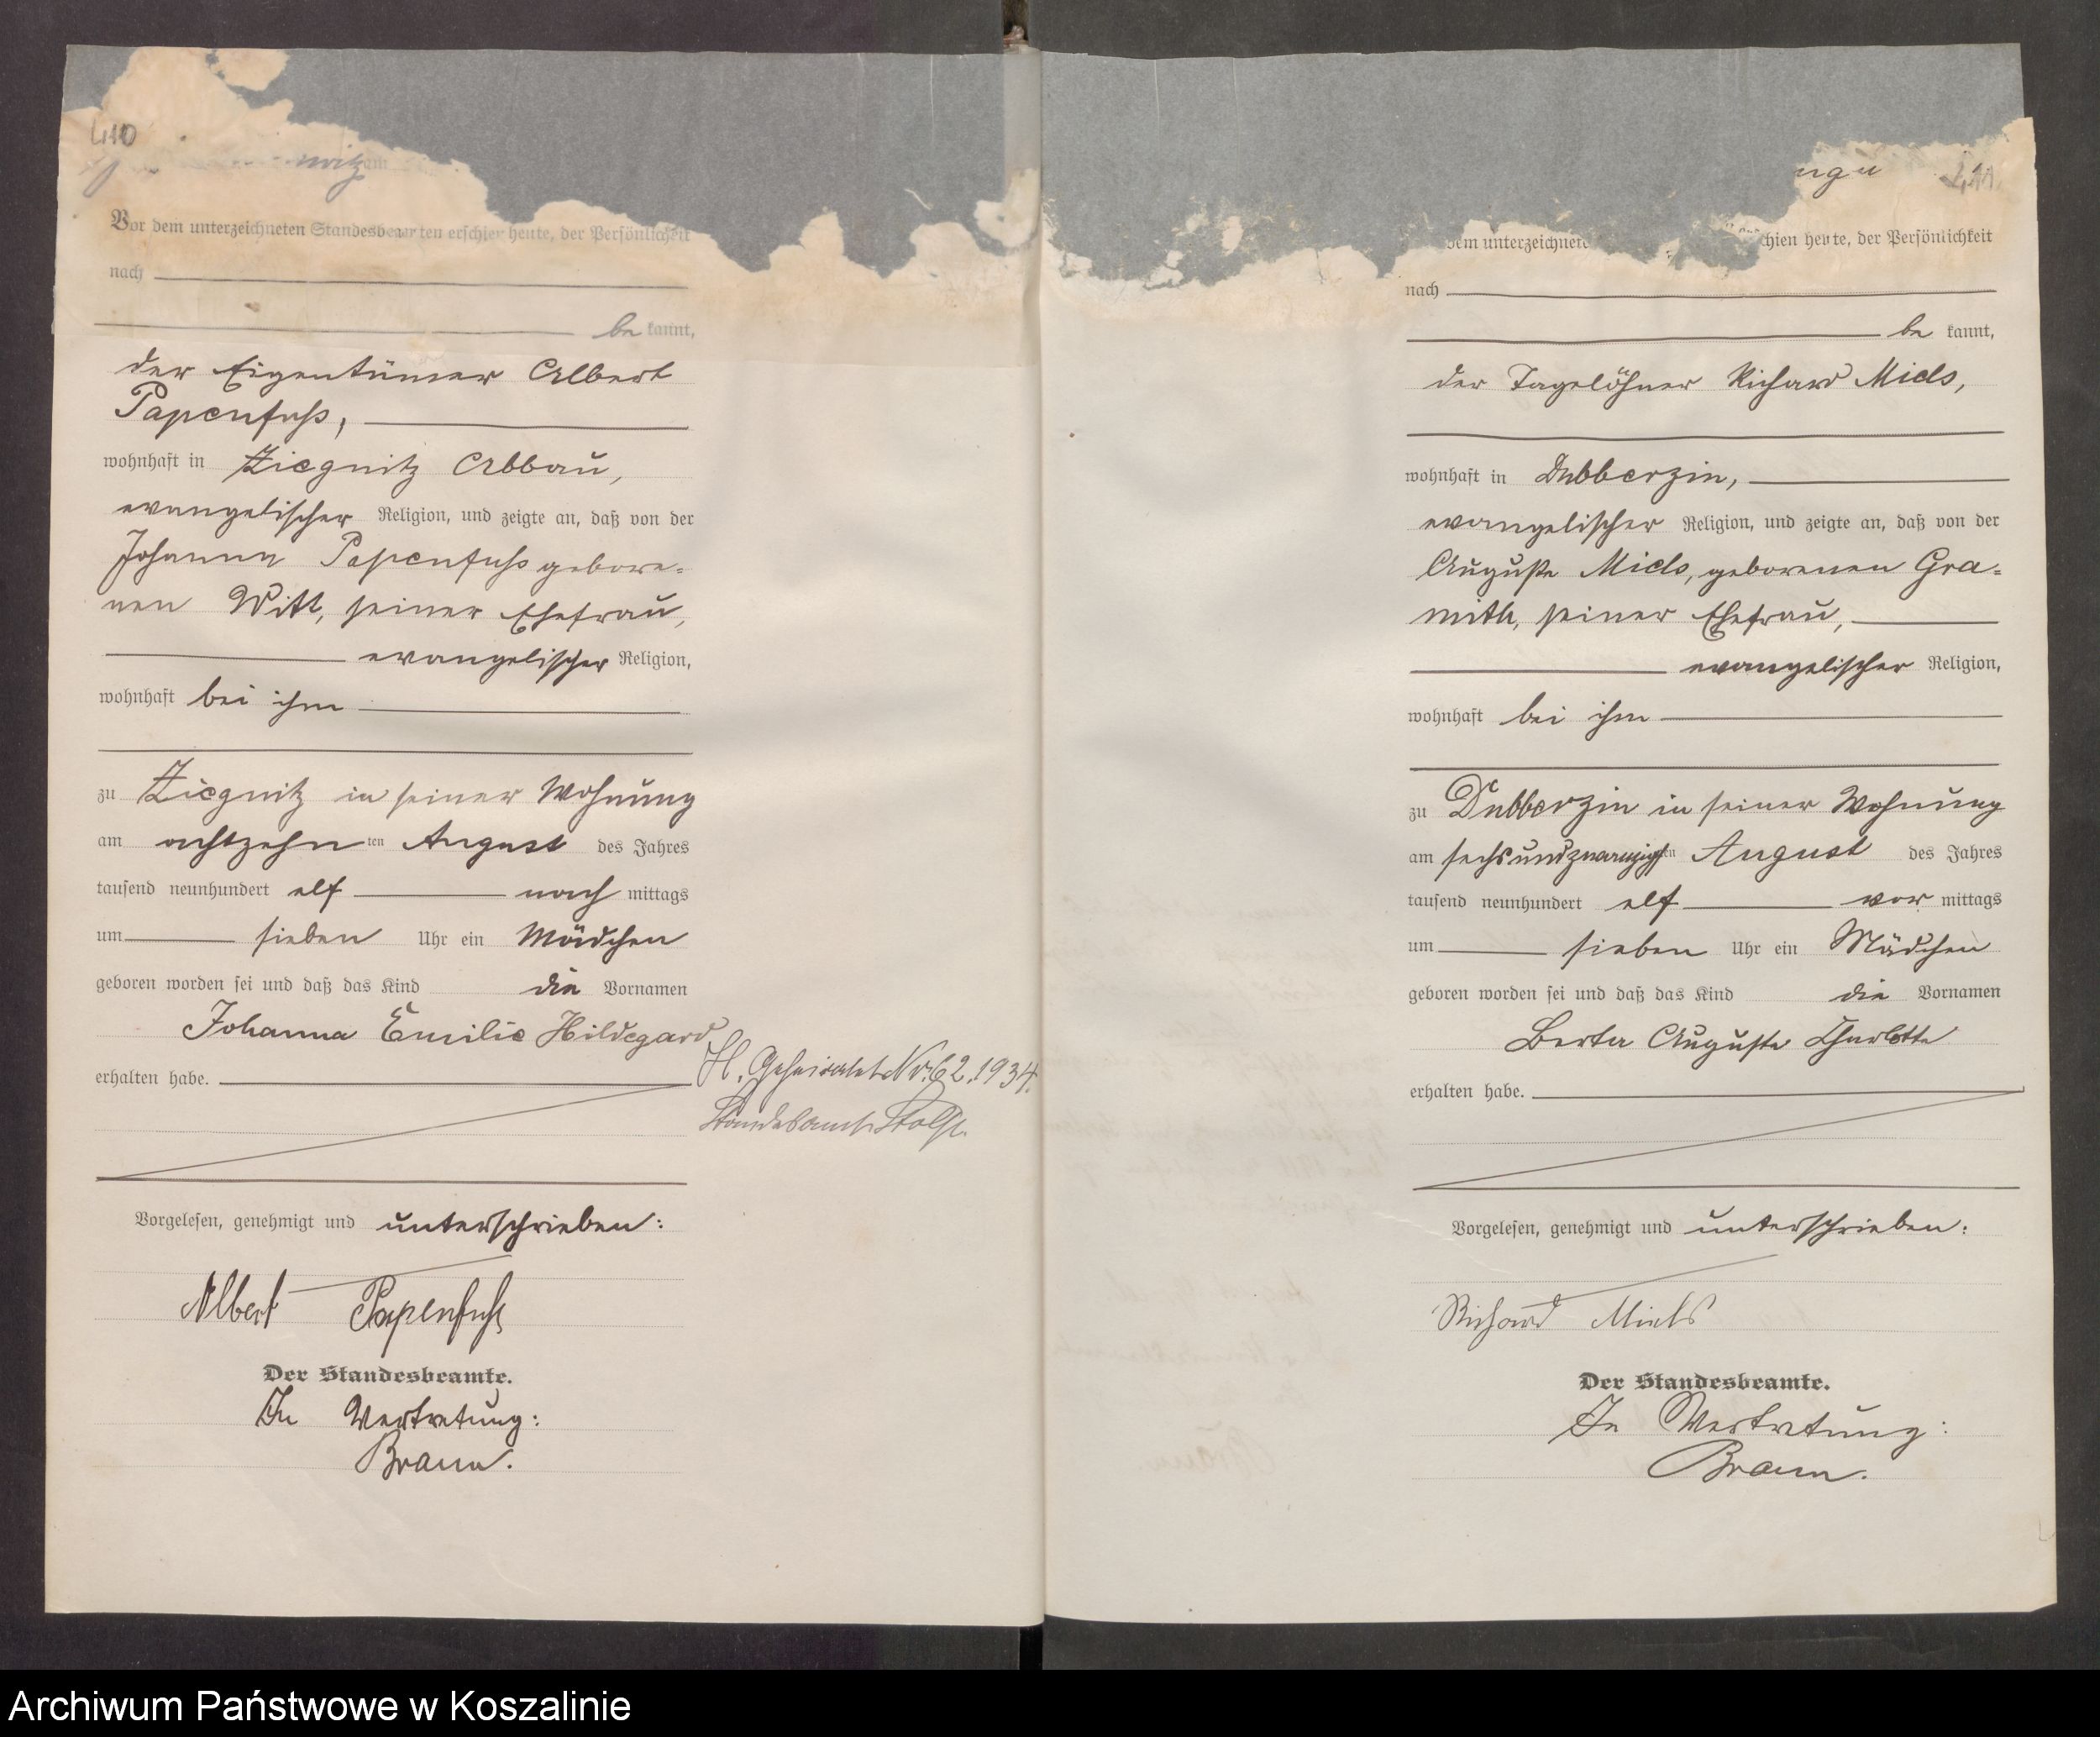 410
nitz am
Vor dem unterzeichneten Standesbeamten erschien heute, der Persönlichkeit
nach
be kannt,
der Eigentümer Albert
Papenfuß,
wohnhaft in Ziegnitz Abbau,
evangelischer Religion, und zeigte an, daß von der
Johanna Papenfuß gebore=
nen Witt, seiner Ehefrau,
evangelischer Religion,
wohnhaft bei ihm
zu Ziegnitz in seiner Wohnung
am achtzehn ten August des Jahres
tausend neunhundert elf nach mittags
um sieben Uhr ein Mädchen
geboren worden sei und daß das Kind die Vornamen
Johanna Emilie Hildegard
erhalten habe.
H. Geheiratet Nr. 62. 1934.
Standesamt Stolp.
Vorgelesen, genehmigt und unterschrieben:
Albert Papenfuß
Der Standesbeamte.
In Vertretung:
Braun.
411
dem unterzeichnete chien heute, der Persönlichkeit
nach
be kannt,
der Tagelöhner Richard Miels,
wohnhaft in Dubberzin,
evangelischer Religion, und zeigte an, daß von der
Auguste Miels, geborenen Gra=
mith, seiner Ehefrau,
evangelischer Religion,
wohnhaft bei ihm
zu Dubberzin in seiner Wohnung
am sechsundzwanzigsten August des Jahres
tausend neunhundert elf vor mittags
um sieben Uhr ein Mädchen
geboren worden sei und daß das Kind die Vornamen
Berta Auguste Charlotte
erhalten habe.
Vorgelesen, genehmigt und unterschrieben:
Richard Miels
Der Standesbeamte.
In Vertretung:
Braun.
Archiwum Państwowe w Koszalinie